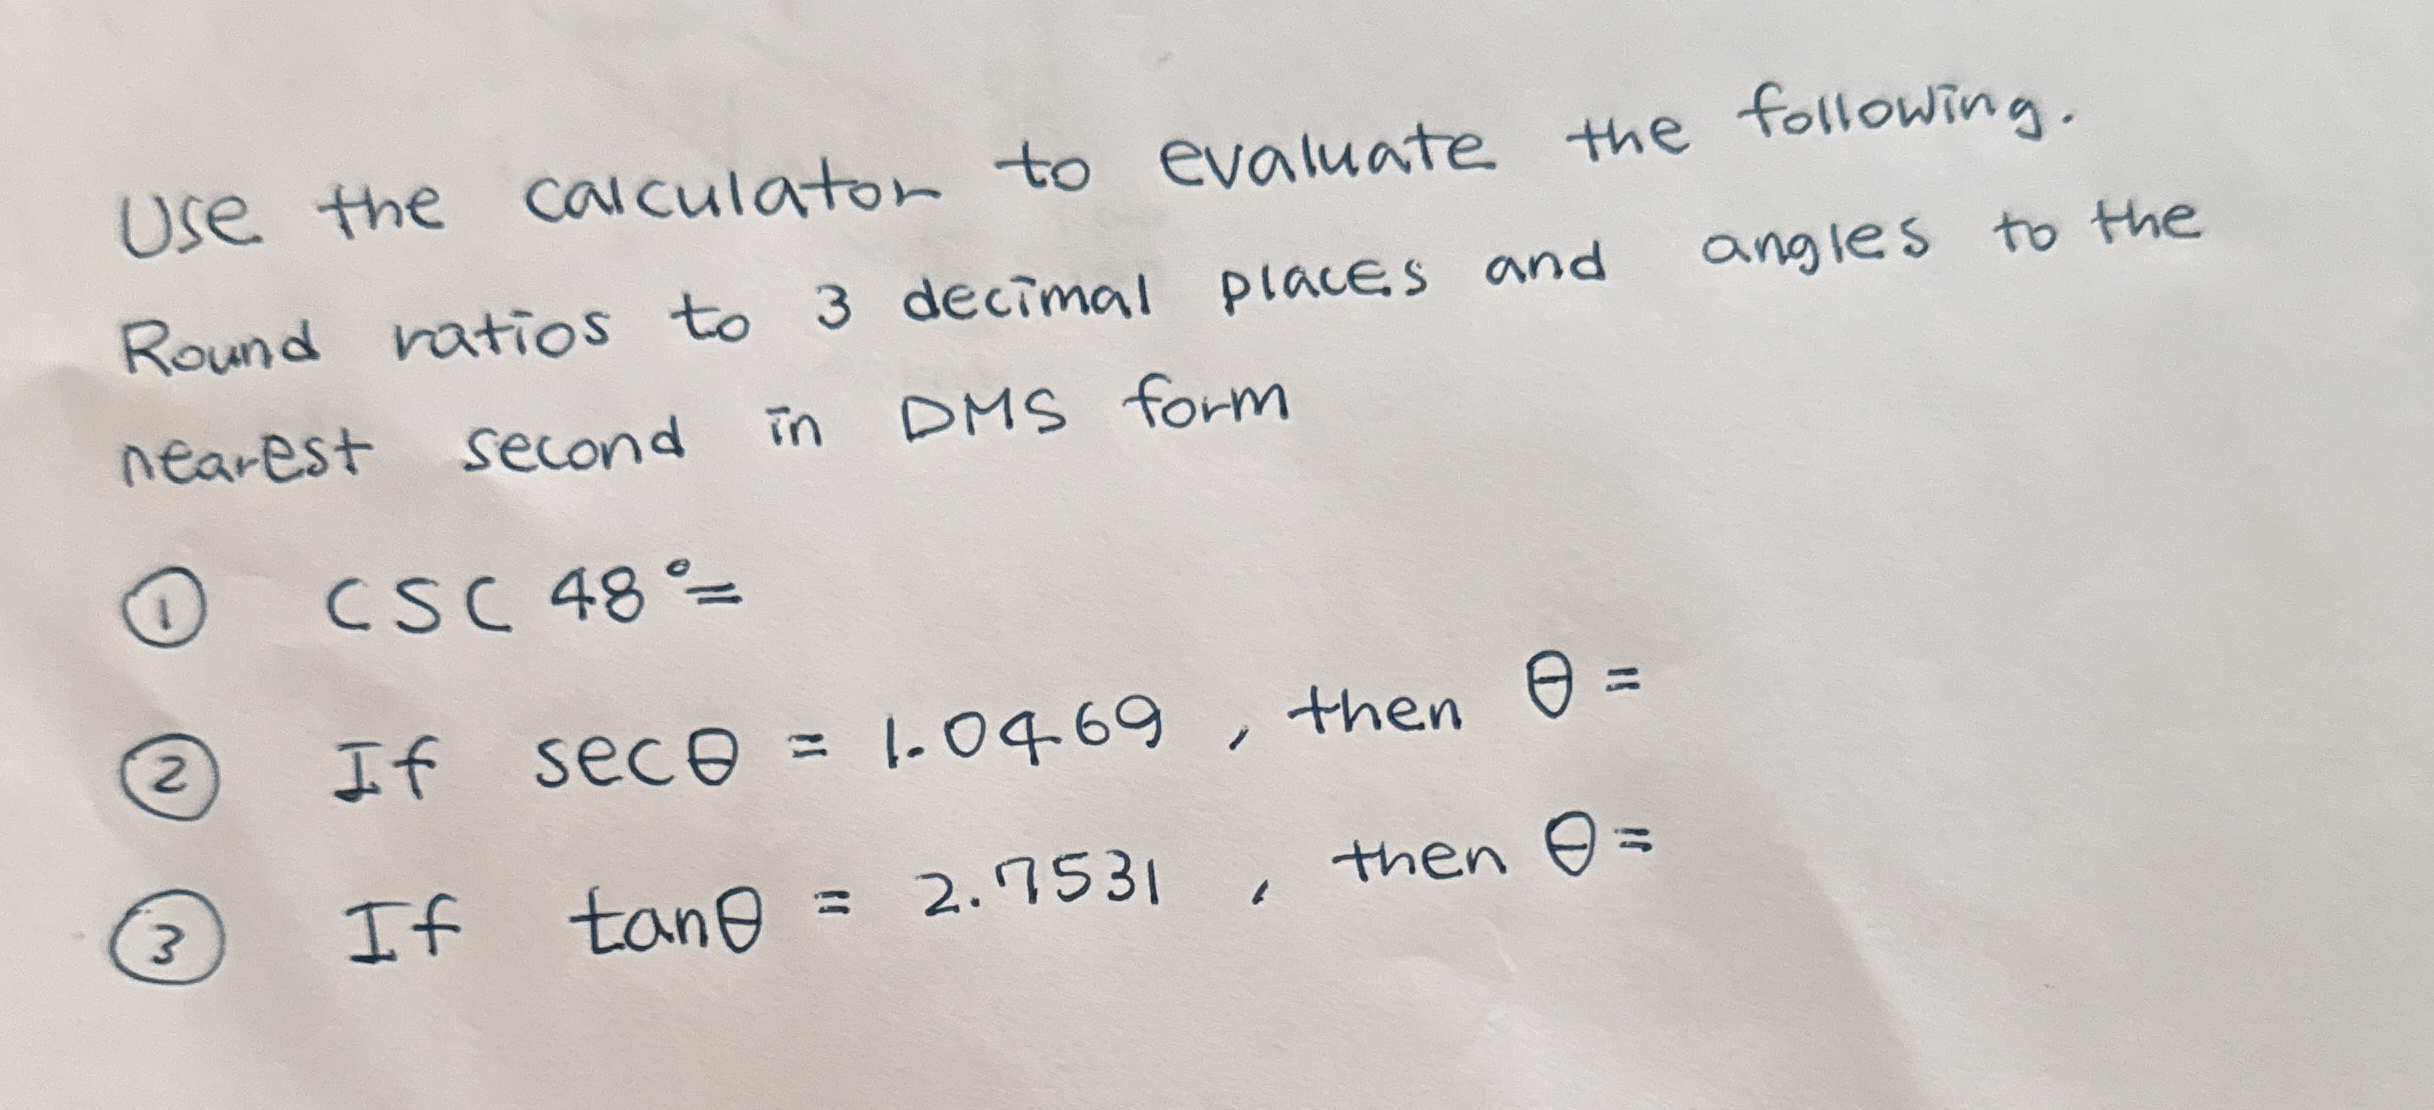 Use the calculator to evaluate the following.
Round ratios to 3 decimal places and angles to the
nearest second in DMS form
① CSC 48°=
② If secθ = 1.0469, then θ =
③ If tanθ = 2.7531, then θ=